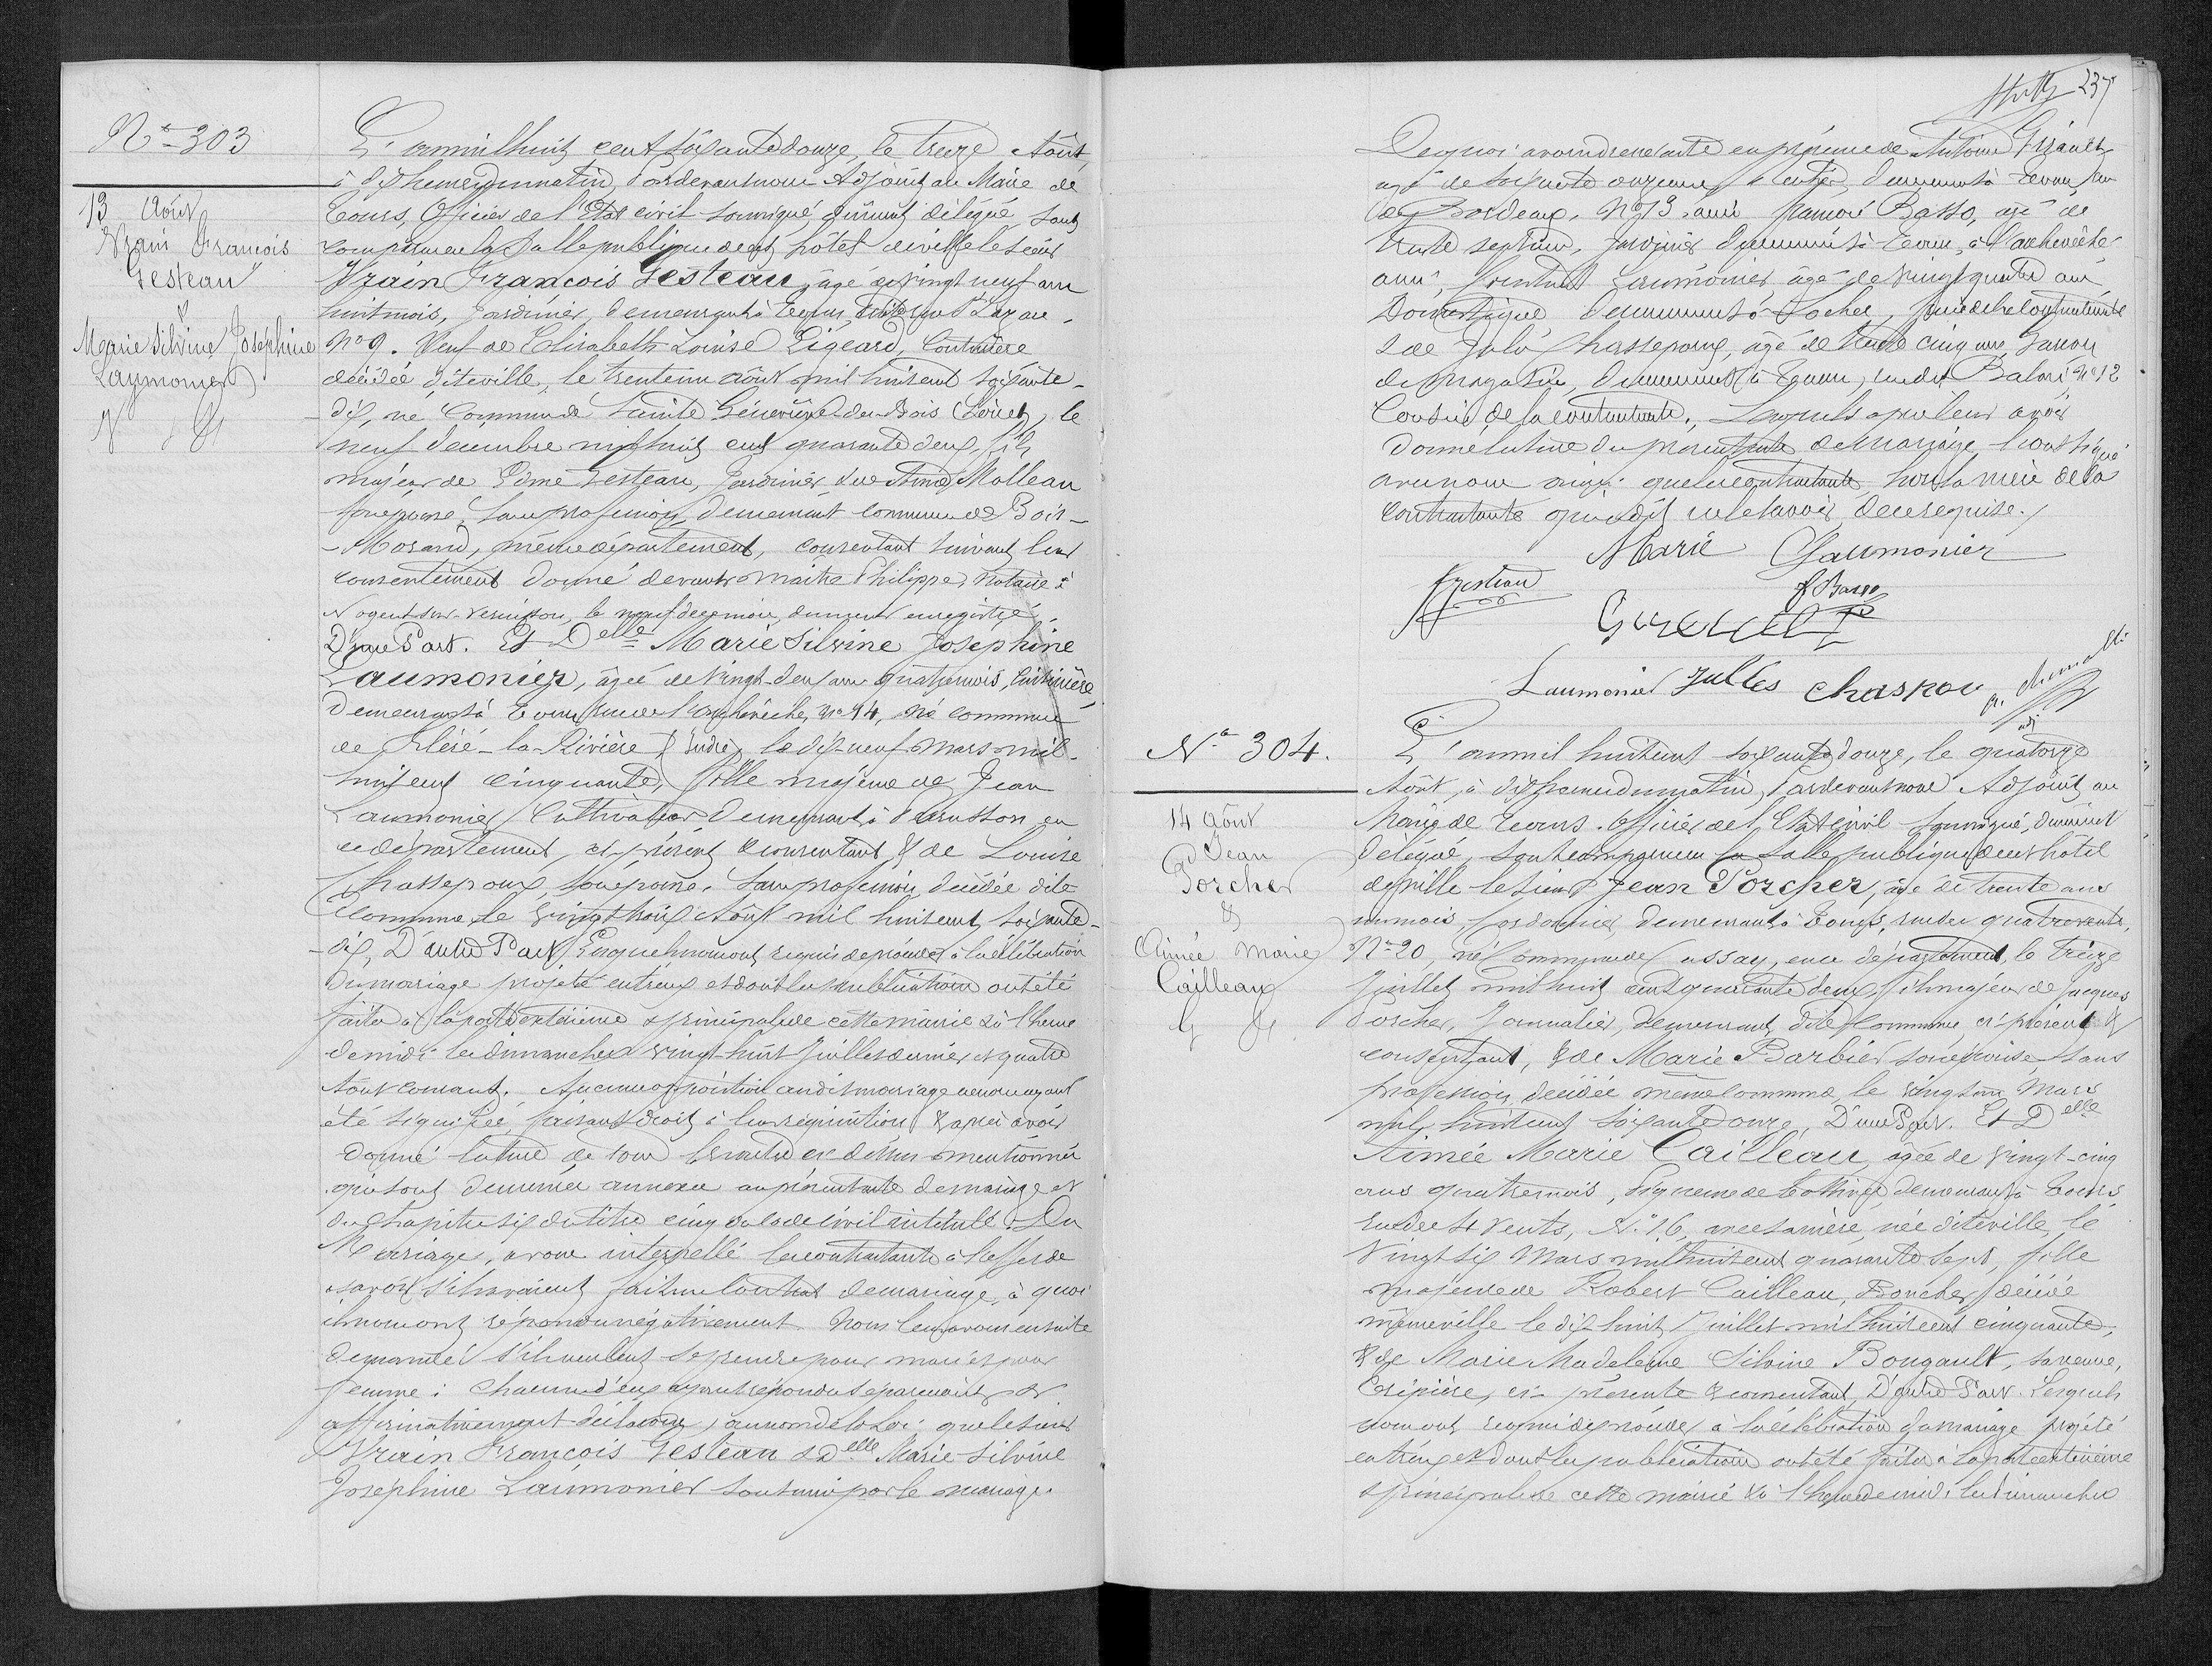 Nº 303
13 Août
Vrain François
Gesteau
&
Marie Silvine Joséphine
Laumonier
L'an mil huit cent soixante douze, le treize Août
à dix heures du matin, Pardevant nous Adjoint au Maire de
Tours, Officier de l'Etat civil soussigné, dûment délégué, sont
comparus en la salle publique de cet hôtel de ville le sieur
Vrain François Gesteau, âgé de vingt neuf ans
huit mois, Jardinier, demeurant à Tours, rue St Lazare
Nº 9. Veuf de Elisabeth Louise Ligeard, Couturière
décédée dite ville, le trente un août mil huit cent soixante-
-dix, né Commune de Sainte Géneviève-des-Bois (Loiret), le
neuf décembre mil huit cent quarante deux, fils
majeur de Edme Gesteau, Jardinier & de Anne Molleau
son épouse, sans profession, demeurant commune de Bois-
-Morand, même département, consentant suivant leur
consentement donné devant Maître Philippe, Notaire à
Nogent-sur-Vernisson, le neuf de ce mois, dument enregistré,
D'une Part. Et Delle Marie Silvine Joséphine
Laumonier, âgée de vingt-deux ans quatre mois, Cuisinière,
Demeurant à Tours, rue de l'archevêché, nº 14, née commune
de Cléré-la-Rivière (Indre) le dix-neuf Mars mil-
huit cent cinquante, fille majeure de Jean
Laumonier, Cultivateur demeurant à Perrusson en
ce département, ci-présent & consentant & de Louise
Chassepoux, son épouse, sans profession, décédée dite
Commune, le vingt trois Août mil huit cent soixante-
-dix, D'autre Part. Lesquels nous ont requis de procéder à la célébration
du mariage projeté entr'eux et dont les publications ont été
faites à la porte extérieure & principale de cette mairie & à l'heure
de midi les dimanches vingt-huit Juillet dernier et quatre
Août courant. Aucune opposition au dit mariage ne nous ayant
été signifiée, faisant droit à leur réquisition & après avoir
donné lecture de toutes les pièces ci-dessus mentionnées
qui sont demeurées annexées au présent acte de mariage et
du chapitre six du titre cinq du Code civil intitulé Du
Mariage, avons interpellé les contractants à l'effet de
savoir s'ils avaient fait un contrat de mariage, à quoi
ils nous ont répondu négativement. Nous leur avons ensuite
demandé s'ils veulent se prendre pour mari et pour
femme : chacun d'eux ayant répondu séparément et
affirmativement déclarons, au nom de la Loi que le sieur
Vrain François Gesteau & Delle Marie Silvine
Joséphine Laumonier sont unis par le mariage.
237
De quoi avons dressé acte en présence de Antoine
âgé de soixante onze ans, rentier, demeurant à Tours, rue
de Bordeaux, Nº 13, ami, François Basso, âgé de
trente sept ans, Jardinier demeurant à Tours, à l'archevêché
ami, Laumonier, âgé de vingt quatre ans
Domestique demeurant à Loches, frère de la contractante
& de Jules Chassepoux, âgé de trente cinq ans, Garçon
de magasin, demeurant à Tours, rue de Balais Nº 12
Cousin de la contractante. Lesquels après leur avoir
donné lecture du présent acte de mariage l'ont signé
avec nous ainsi que les contractants, hors la mère de la
contractante qui a dit ne le savoir de ce requise./
Marie Laumonier
Gesteau
F Basso
Laumonier Jules Chaspou
Nº 304.
14 Août
Jean
Porcher
&
Aimée Marie
Cailleau
L'an mil huit cent soixante douze, le quatorze
Août, à dix heures du matin, Pardevant nous Adjoint au
Maire de Tours, Officier de l'Etat civil soussigné, dûment
délégué, sont comparus en la salle publique de cet hôtel
de ville le sieur Jean Porcher, âgé de trente ans
un mois, Cordonnier, demeurant à Tours, rue des quatre vents,
Nº 20, né Commune de Cussay, en ce département, le treize
Juillet mil huit cent quarante deux, fils majeur de Jacques
Porcher, Journalier, demeurant dite Commune, ci-présent &
consentant, & de Marie Barbier son épouse, sans
profession, décédée même commune, le vingt un Mars
mil huit cent soixante onze, D'une Part. Et Delle
Aimée Marie Cailleau, âgée de vingt-cinq
ans quatre mois, Piqueuse de bottines, demeurant à Tours
rue des 4 Vents, Nº 16, avec sa mère, née dite ville, le
vingt six Mars mil huit cent quarante sept, fille
majeure de Robert Cailleau, Boucher, décédé
même ville le dix huit Juillet mil huit cent cinquante,
& de Marie Madeleine Silvine Bougault, sa veuve,
Crêpière, ci-présente & consentant, D'autre Part. Lesquels
nous ont requis de procéder à la célébration du mariage projeté
entr'eux et dont les publications ont été faites à la porte extérieure
& principale de cette mairie & à l'heure de midi les dimanches